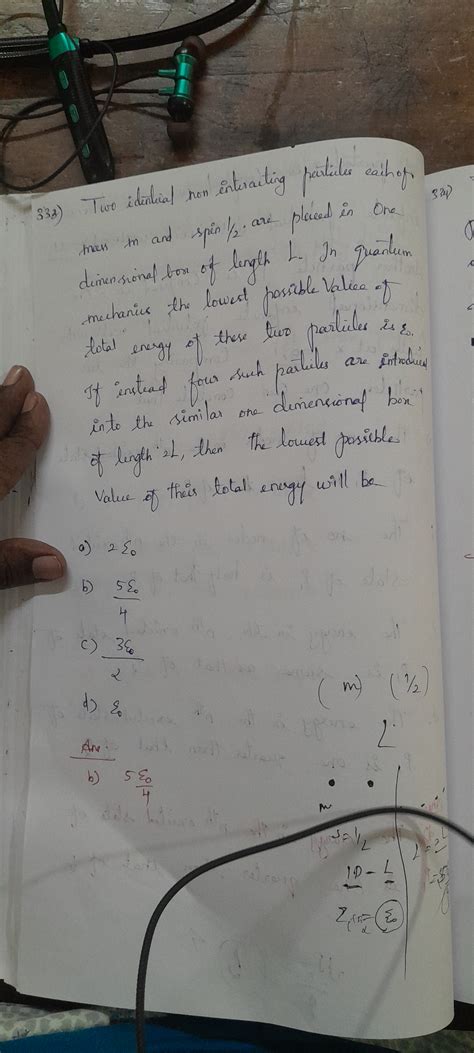 332) Two identical non interacting particles each of
mass m and spin 1/2. are placed in One
dimensional box of length L. In quantum
mechanics the lowest possible Value of
total energy of these two particles is ε₀.
If instead four such particles are introduced
into the similar one dimensional box
of length 2L, then the lowest possible
Value of their total energy will be
a) 2ε₀
b) 5ε₀/4
c) 3ε₀/2
d) ε₀
Ans
b) 5ε₀/4
(m) (1/2)
L
m
s=1/2
1D - L
ε₀